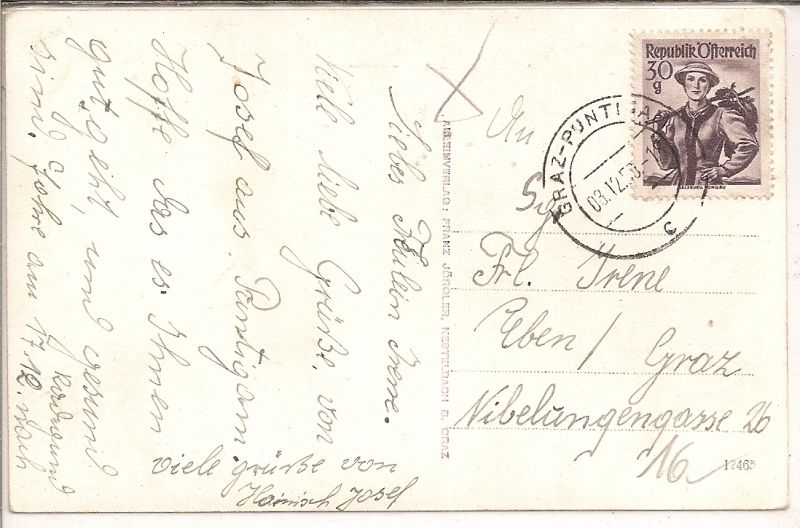 Liebes Freulein Irene.
Viele liebe Grüße. von
Josef aus. Puntigam.
Hoffe das es Ihnen
gut geht, und gesund
sind. fahre am 17.12. nach
viele grüße von
Hainisch Josef
ALLEINVERLAG: FRANZ JÖRGLER, NESTELBACH B. GRAZ
Republik Österreich
30
g
SALZBURG PONGAU
GRAZ-PUNTIGA
03.12.53.-1
c
An
Frl. Irene
Eben / Graz
Nibelungengasse 26
16
12463